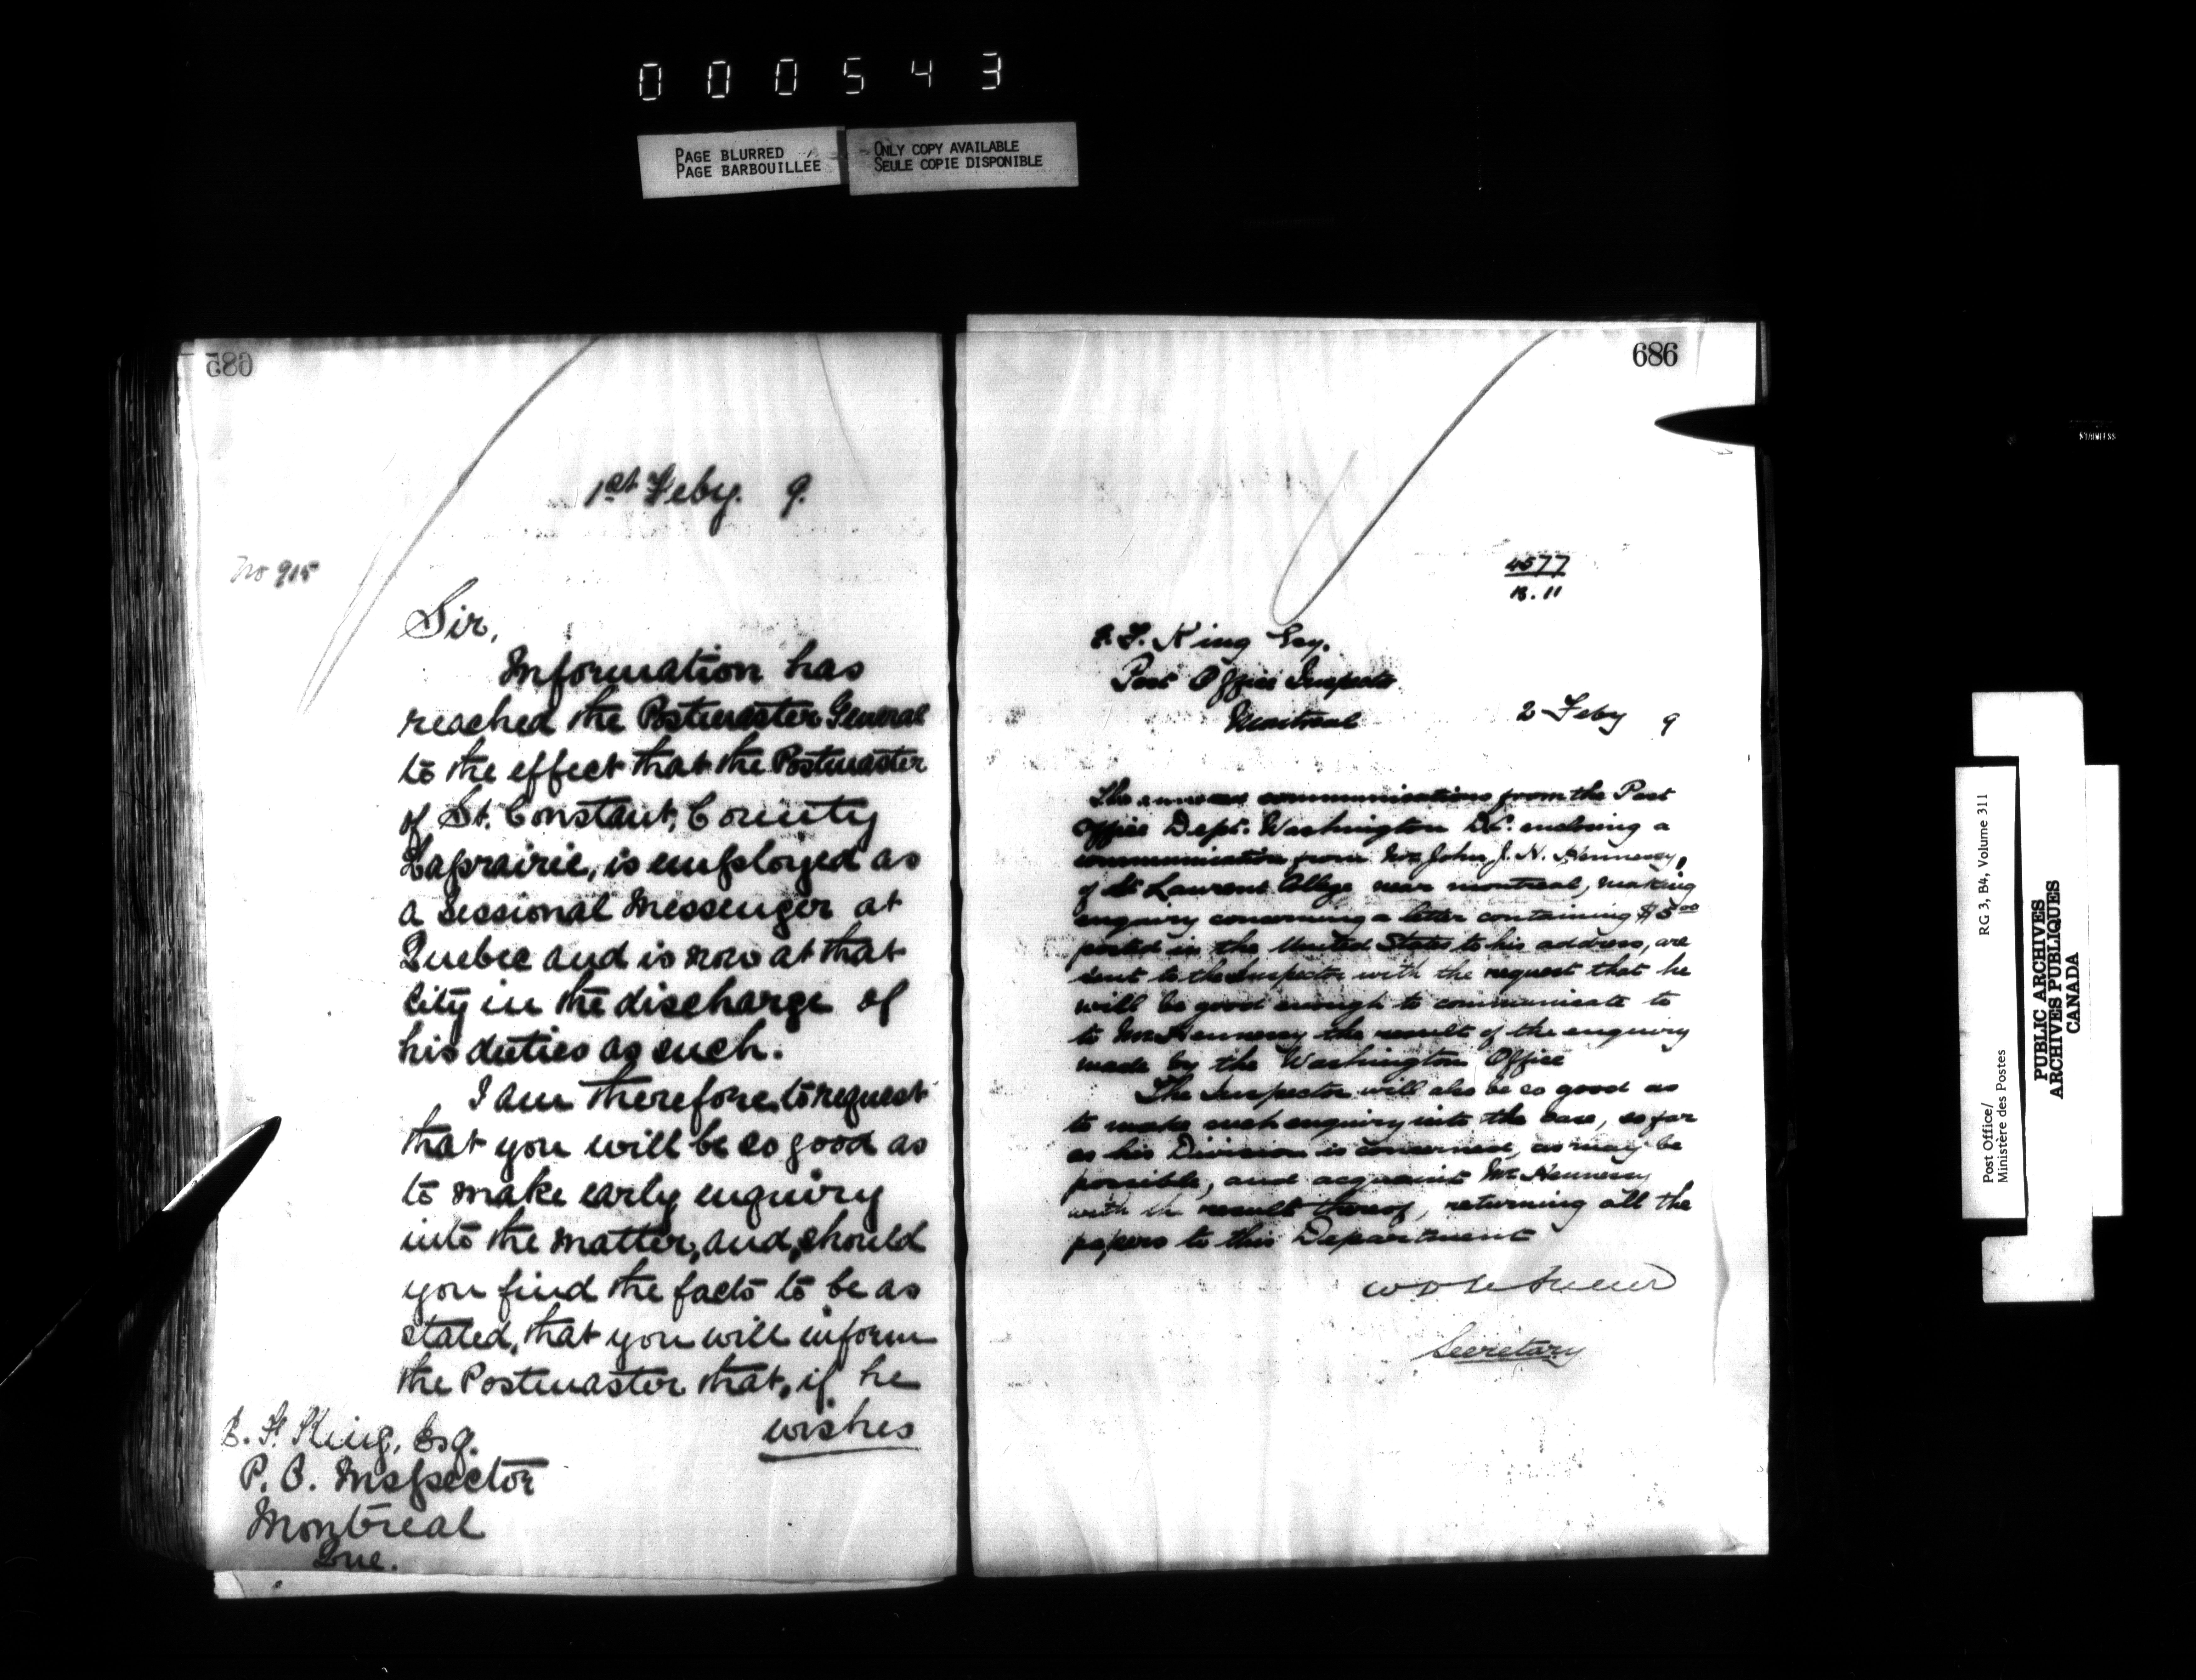 000543
PAGE BLURRED
PAGE BARBOUILLÉE
ONLY COPY AVAILABLE
SEULE COPIE DISPONIBLE
685
1st Feby. 9.
No 915
Sir,
Information has
reached the Postmaster General
to the effect that the Postmaster
of St. Constant, County
Laprairie, is employed as
a Sessional Messenger at
Quebec and is now at that
City in the discharge of
his duties as such.
I am therefore to request
that you will be so good as
to make early enquiry
into the matter, and, should
you find the facts to be as
stated, that you will inform
the Postmaster that, if he
wishes
E. F. King, Esq.
P. O. Inspector
Montreal
Que.
686
4577
B. 11
E. F. King Esq.
Post Office Inspector
Montreal
2 Feby 9
The communications from the Post
Office Dept. Washington D.C. enclosing a
communication from Mr John J. N. Hennessy,
of St Laurent College, near Montreal, making
enquiry concerning a letter containing $5.00
posted in the United States to his address, are
sent to the Inspector with the request that he
will be good enough to communicate to
to Mr Hennessy the result of the enquiry
made by the Washington Office
The Inspector will also be so good as
to make such enquiry into the case, so far
as his Division is concerned, as may be
possible, and acquaint Mr Hennessy
with the result thereof, returning all the
papers to this Department
W D LeSueur
Secretary
STAINLESS
Post Office/
Ministère des Postes
RG 3, B4, Volume 311
PUBLIC ARCHIVES
ARCHIVES PUBLIQUES
CANADA